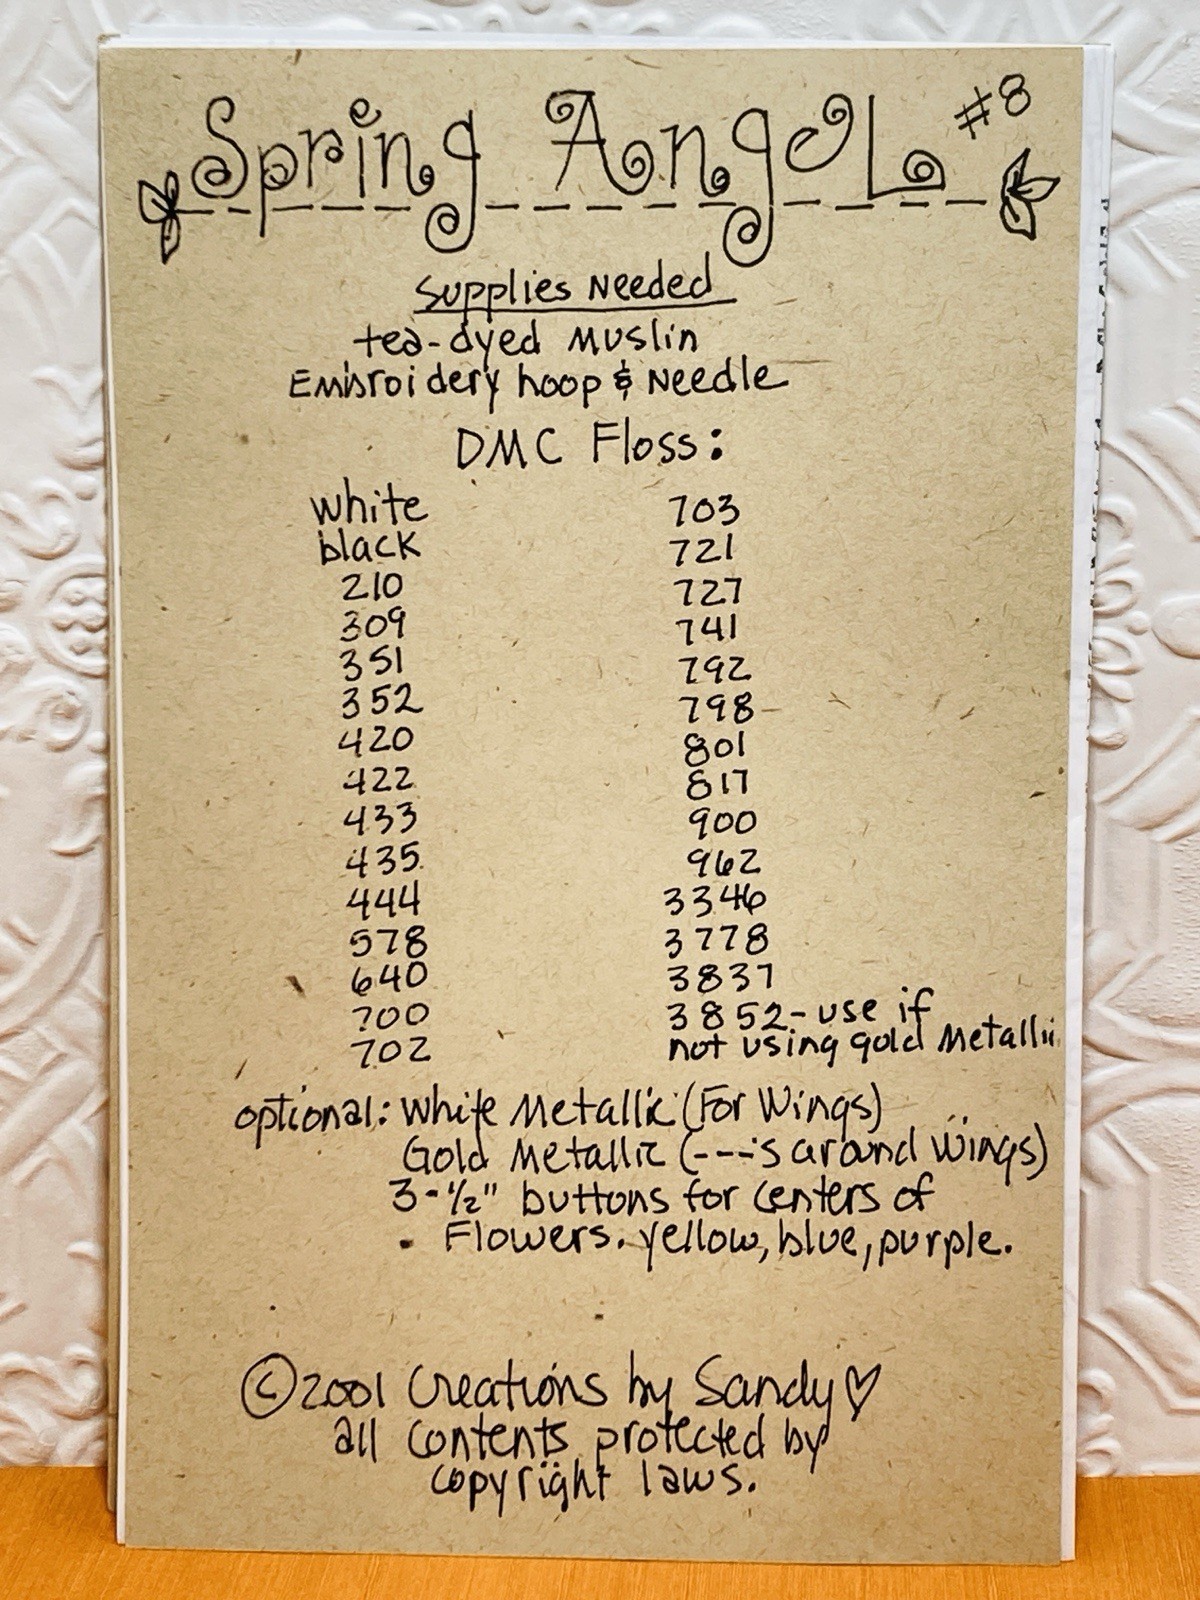 Spring Angel #8
Supplies Needed
tea-dyed Muslin
Embroidery hoop & Needle
DMC Floss:
white 703
black 721
210 727
309 741
351 792
352 798
420 801
422 817
433 900
435 962
444 3346
578 3778
640 3837
700 3852-use if
702 not using gold Metallic
optional: White Metallic (For Wings)
Gold Metallic (---'s around Wings)
3-1/2" buttons for Centers of
Flowers. yellow, blue, purple.
©2001 Creations by Sandy♡
all Contents protected by
copyright laws.